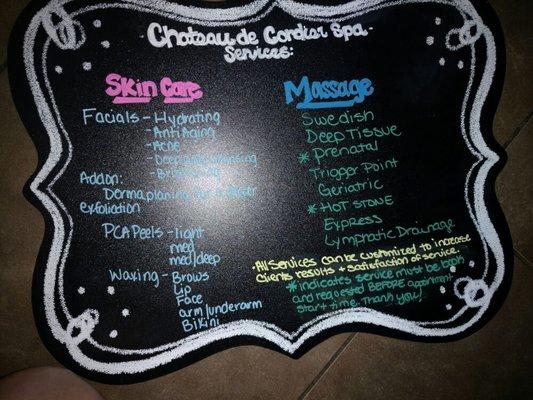 Chateau de Cordier Spa
Services:
Skin Care
Facials - Hydrating
- Anti Aging
- Acne
- Deep pore cleansing
- Brightening
Add on:
Dermaplaning for
exfoliation
PCA Peels - light
med
med/deep
Waxing - Brows
Lip
Face
arm/underarm
Bikini
Massage
Swedish
Deep Tissue
* Prenatal
Trigger Point
Geriatric
* HOT STONE
Express
Lymphatic Drainage
• All Services can be customized to increase
Clients results + satisfaction of service.
* indicates service must be
and requested BEFORE
start time. Thank you!